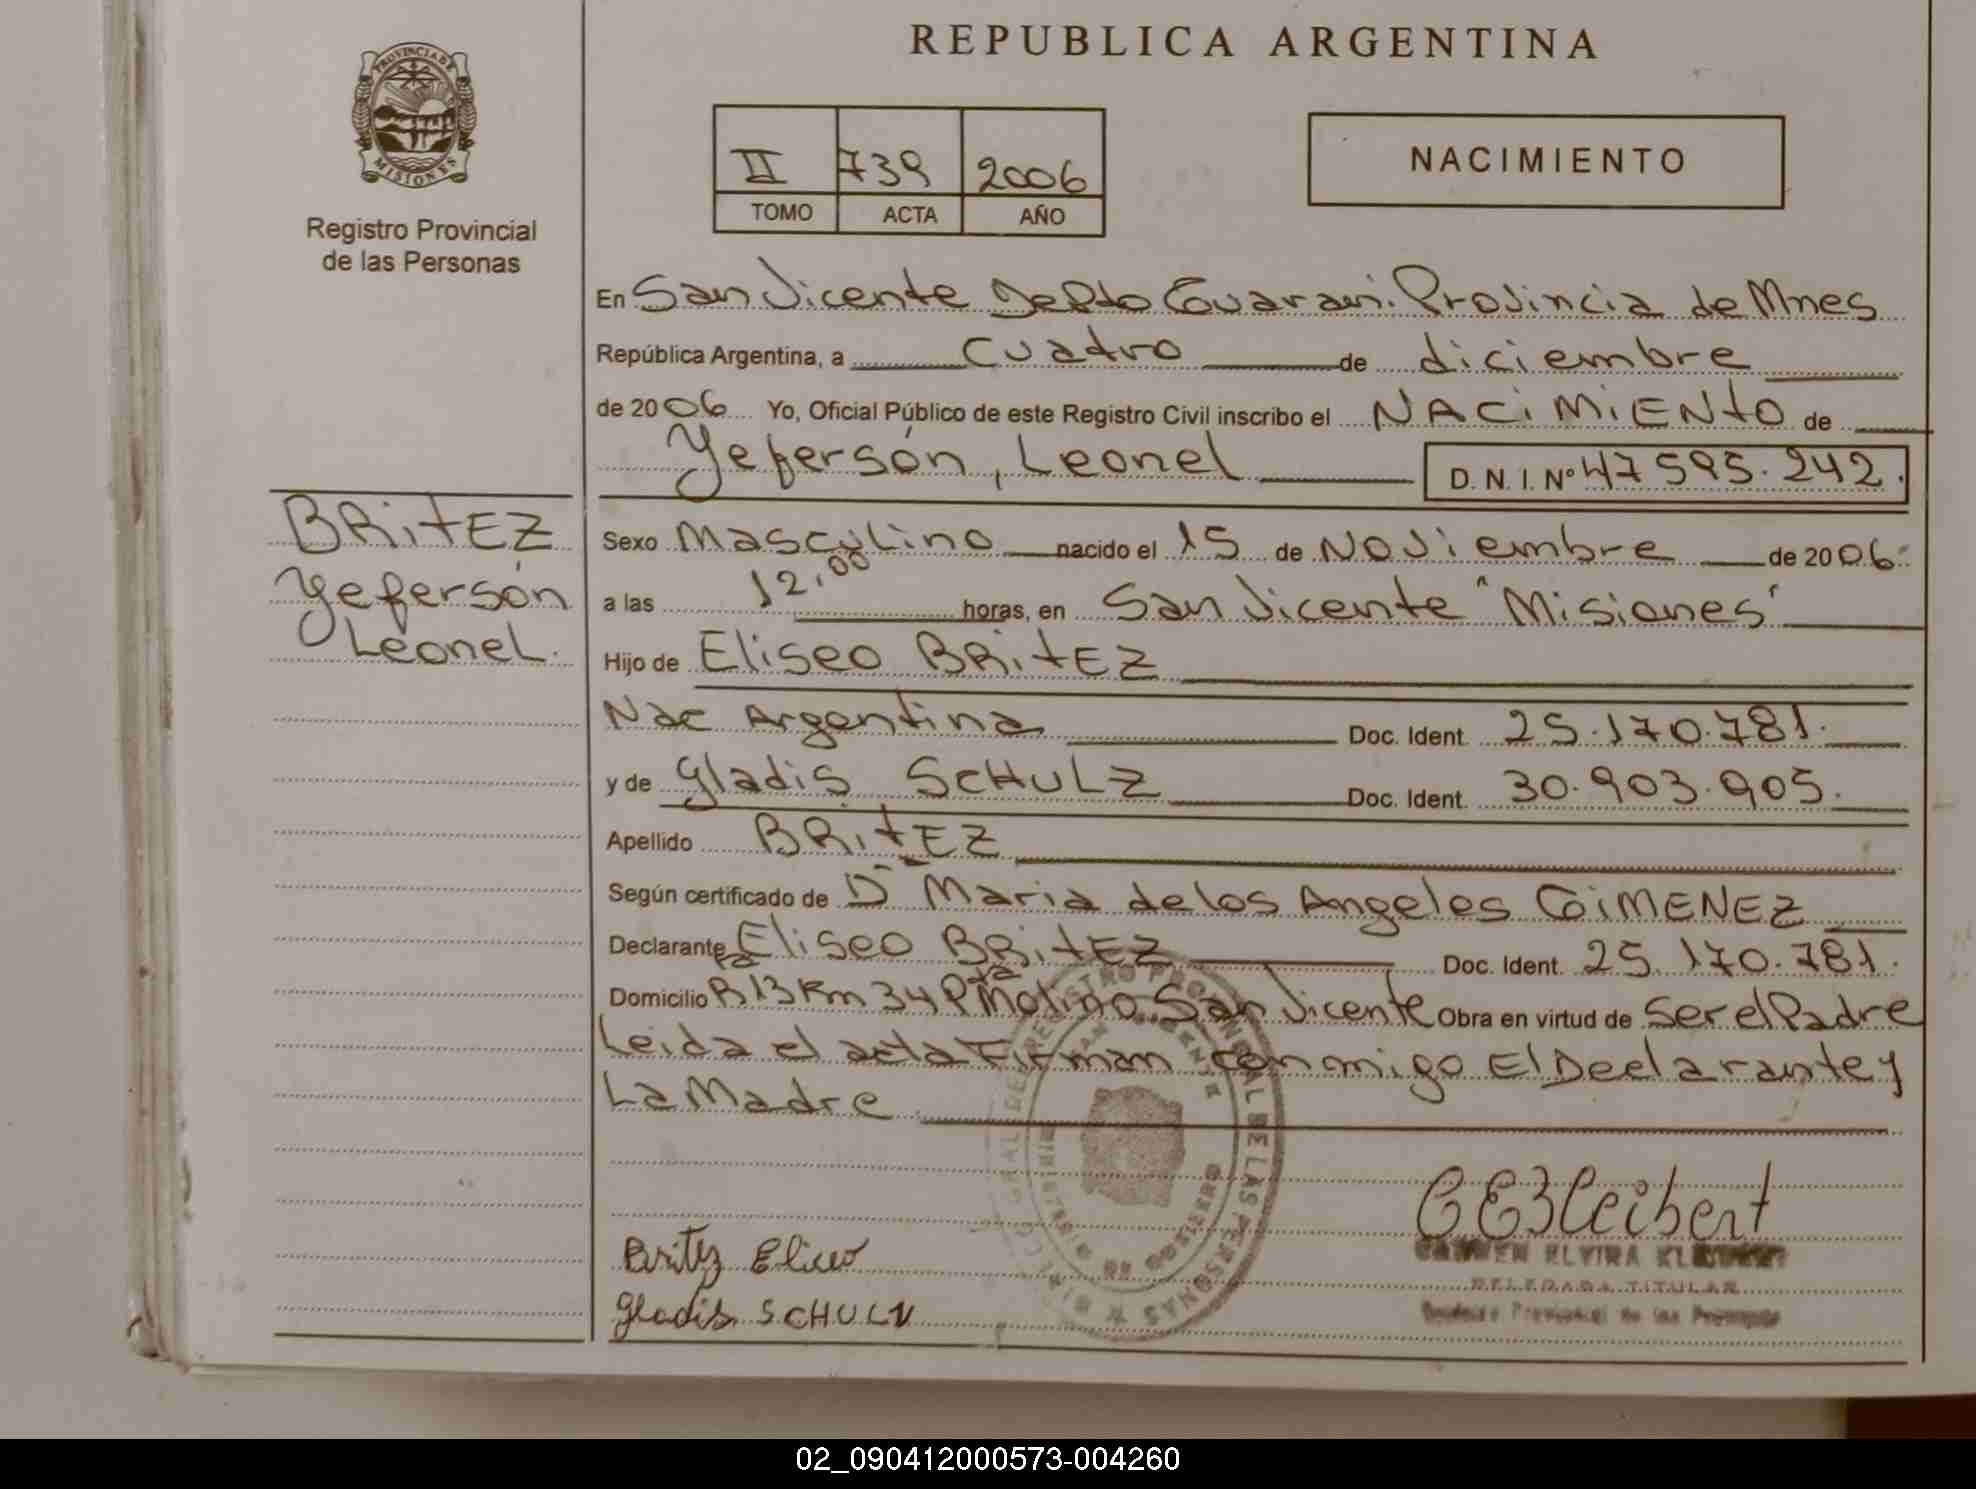 REPUBLICA ARGENTINA
PROVINCIA DE
MISIONES
Registro Provincial
de las Personas
II 739 2006
TOMO ACTA AÑO
NACIMIENTO
En San Vicente Depto Guarani. Provincia de Mnes
República Argentina, a cuatro de diciembre
de 2006 Yo, Oficial Público de este Registro Civil inscribo el NACiMiENtO de
Yefersón, Leonel D.N.I. Nº 47 595.242.
BRitEZ
Yefersón
Leonel.
Sexo Masculino nacido el 15 de Noviembre de 2006.
a las 12,00 horas, en San Vicente "Misiones"
Hijo de Eliseo BRitEZ
Nac Argentina Doc. Ident. 25.170.781.
y de Gladis SCHULZ Doc. Ident. 30.903.905.
Apellido BRitEZ
Según certificado de Dra Maria de los Angeles GiMENEZ
Declarante Eliseo BRitEZ Doc. Ident. 25.170.781.
Domicilio Rta 13 Km 34 Pta Molino San Vicente Obra en virtud de Ser el Padre
Leida el acta Firman conmigo El Declarante y
La Madre
Britez Eliceo
Gladis SCHULZ
CARMEN ELVIRA
DELEGADA TITULAR
Registro Provincial de las Personas
02_090412000573-004260